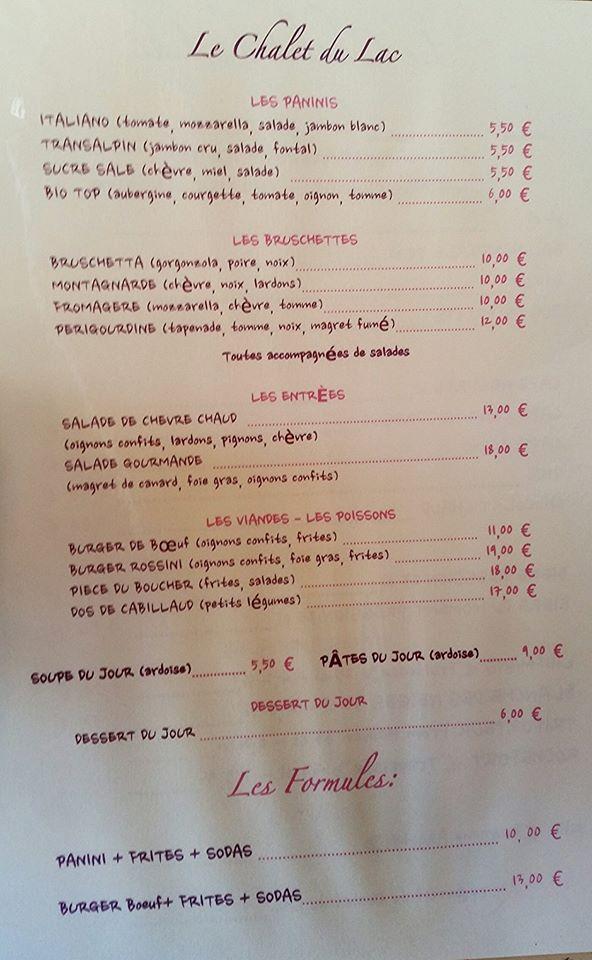 Le Chalet du Lac
LES PANINIS
ITALIANO (tomate, mozzarella, salade, jambon blanc) 5,50 €
TRANSALPIN (jambon cru, salade, fontal) 5,50 €
SUCRE SALE (chèvre, miel, salade) 5,50 €
BIO TOP (aubergine, courgette, tomate, oignon, tomme) 6,00 €
LES BRUSCHETTES
BRUSCHETTA (gorgonzola, poire, noix) 10,00 €
MONTAGNARDE (chèvre, noix, lardons) 10,00 €
FROMAGERE (mozzarella, chèvre, tomme) 10,00 €
PERIGOURDINE (tapenade, tomme, noix, magret fumé) 12,00 €
Toutes accompagnées de salades
LES ENTRÈES
SALADE DE CHEVRE CHAUD 13,00 €
(oignons confits, lardons, pignons, chèvre)
SALADE GOURMANDE 18,00 €
(magret de canard, foie gras, oignons confits)
LES VIANDES - LES POISSONS
BURGER DE Bœuf (oignons confits, frites) 11,00 €
BURGER ROSSINI (oignons confits, foie gras, frites) 19,00 €
PIECE DU BOUCHER (frites, salades) 18,00 €
DOS DE CABILLAUD (petits légumes) 17,00 €
SOUPE DU JOUR (ardoise) 5,50 € PÂTES DU JOUR (ardoise) 9,00 €
DESSERT DU JOUR
DESSERT DU JOUR 6,00 €
Les Formules:
PANINI + FRITES + SODAS 10,00 €
BURGER Boeuf+ FRITES + SODAS 13,00 €